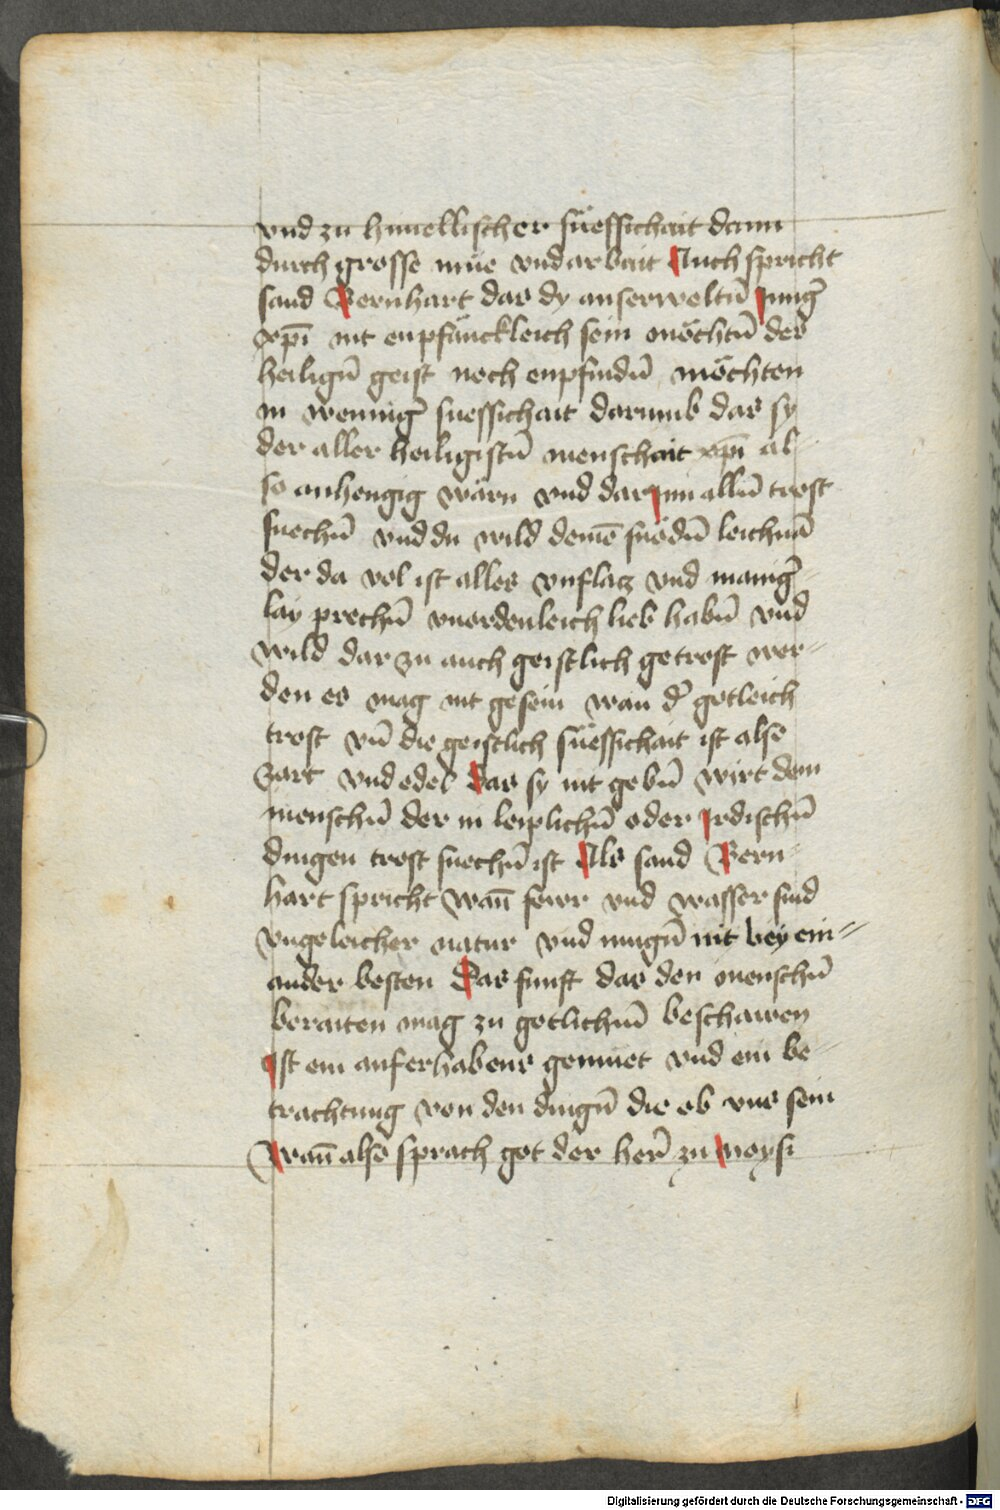 vnd zu himellischer süessichait dann
durch grosse müe vnd arbait Auch spricht
sand Bernhart das dy auserweltn̄ Junḡ
xp̄i nit enpfänckleich sein möchtn̄ des
heilign̄ geist noch enpfindn̄ möchten
in weninḡ suessichait darumb das sy
der aller heiligistn̄ menschait xp̄i al-
so anhengig wärn vnd darJnn alln̄ trost
suechn̄ vnd du wild deinē snödn̄ leichnā
der da vol ist alles vnflatz vnd maniḡ-
lay prechn̄ vnordenleich lieb habn̄ vnd
wild dar zu auch geistlich getrost wer-
den es mag nit gesein wan d̄ gotleich
trost vn̄ die geistlich süessichait ist also
zart vnd edel Das sy nit gebn̄ wirt dem
menschn̄ der in leiplichn̄ oder Jrdischn̄
dingen trost suechn̄ ist Als sand Bern-
hart spricht wan̄ fewr vnd wasser sind
vngeleicher natur vnd mugn̄ nit bey ein-
ander besten Das funft das den menschn̄
beraiten mag zu gotlichm̄ beschawen
Ist ein auferhabens gemuet vnd ein be-
trachtung von den dingn̄ die ob vns sein
Wan̄ also sprach got der her̄ zu Moysi
Digitalisierung gefördert durch die Deutsche Forschungsgemeinschaft - DFG